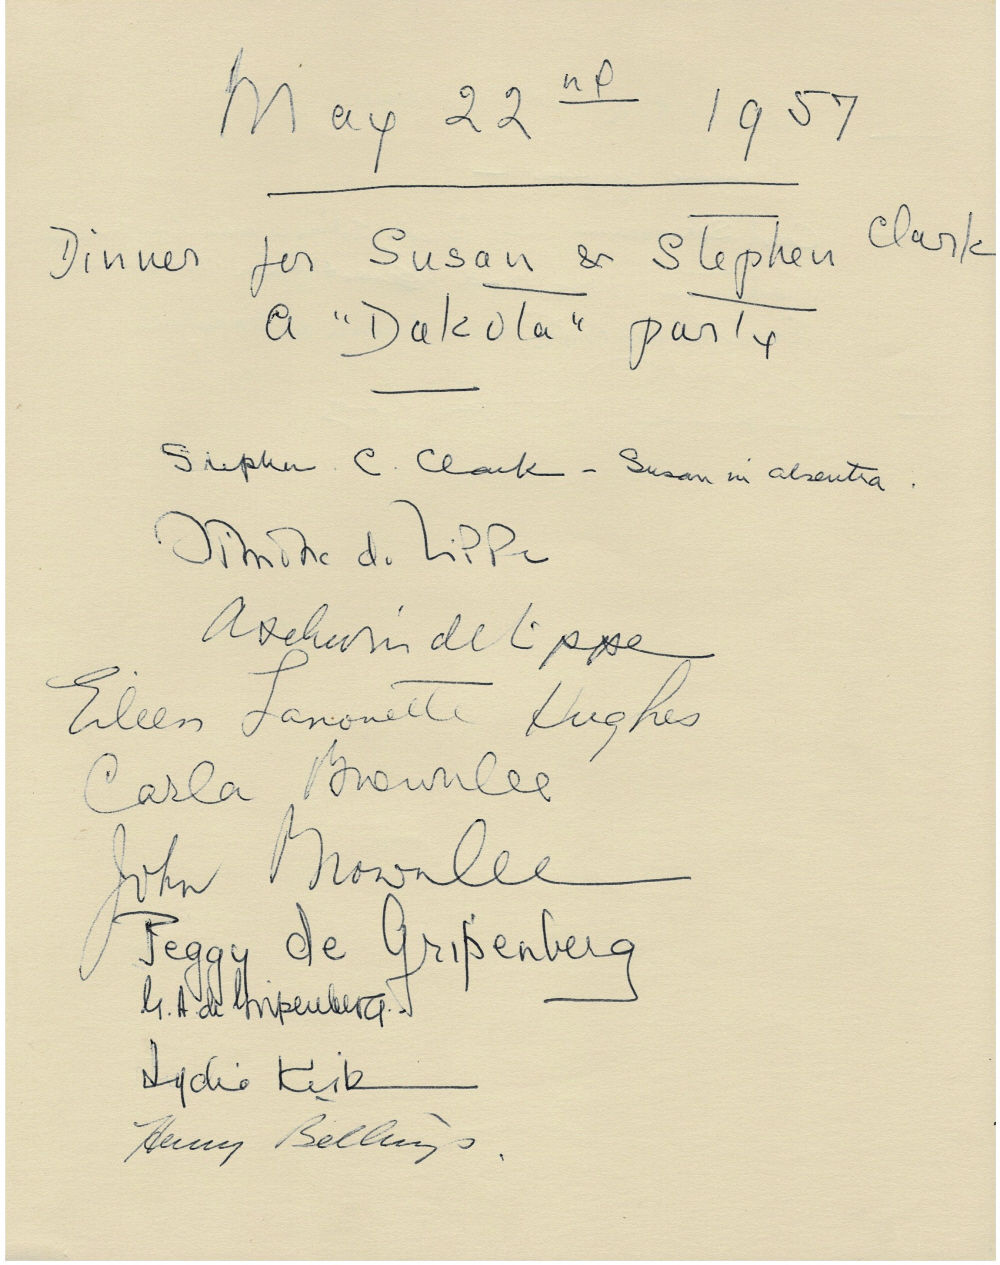 May 22nd 1957
Dinner for Susan & Stephen Clark
a "Dakota" party
Stephen C. Clark - Susan in absentia.
Simone de Lippe
Aschwin de Lippe
Eileen Lanouette Hughes
Carla Brownlee
John Brownlee
Peggy de Gripenberg
G. A. de Gripenberg.
Lydia Kirk
Henry Billings.